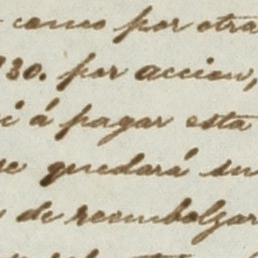 como por otra
30. por accion,
á pagar esta
quedará su
de reembolzar